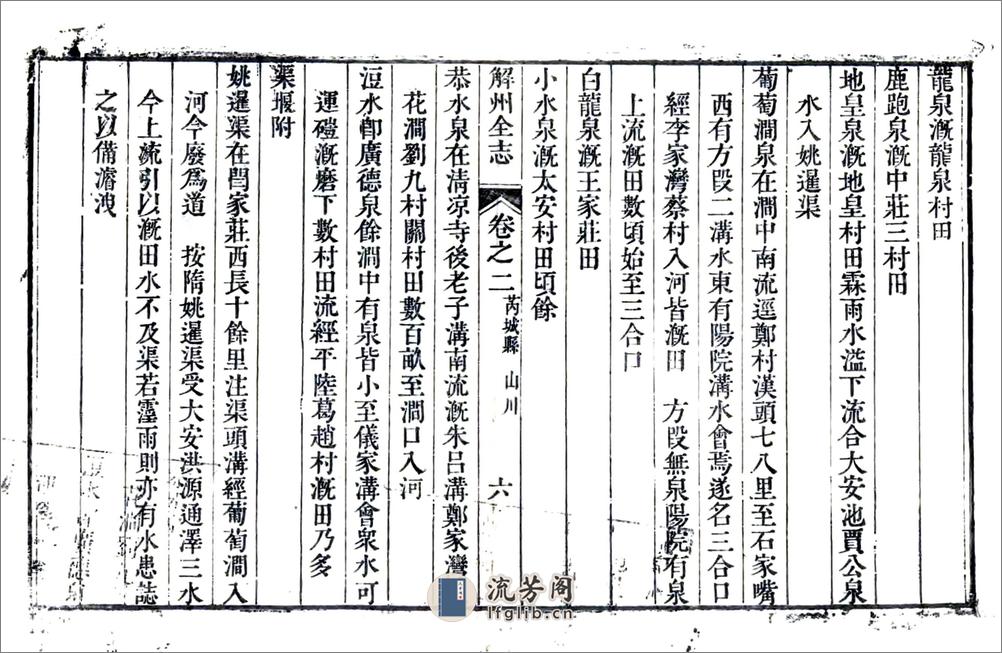 龍泉漑龍泉村田
鹿跑泉漑中莊三村田
地皇泉漑地皇村田霖雨水溢下流合大安池賈公泉
水入姚暹渠
葡萄澗泉在澗中南流逕鄭村漢頭七八里至石家嘴
西有方段二溝水東有陽院溝水會焉遂名三合口
經李家灣蔡村入河皆漑田 方段無泉陽院有泉
上流漑田數頃始至三合口
白龍泉漑王家莊田
小水泉漑太安村田頃餘
解州全志 卷之二 芮城縣 山川 六
恭水泉在淸凉寺後老子溝南流漑朱呂溝鄭家灣
花澗劉九村關村田數百畝至澗口入河
洹水卽廣德泉餘澗中有泉皆小至儀家溝會衆水可
運磑漑磨下數村田流經平陸葛趙村漑田乃多
渠堰附
姚暹渠在閆家莊西長十餘里注渠頭溝經葡萄澗入
河今廢爲道 按隋姚暹渠受大安洪源通澤三水
今上流引以漑田水不及渠若霪雨則亦有水患誌
之以備濬洩
流芳阁
lfglib.cn